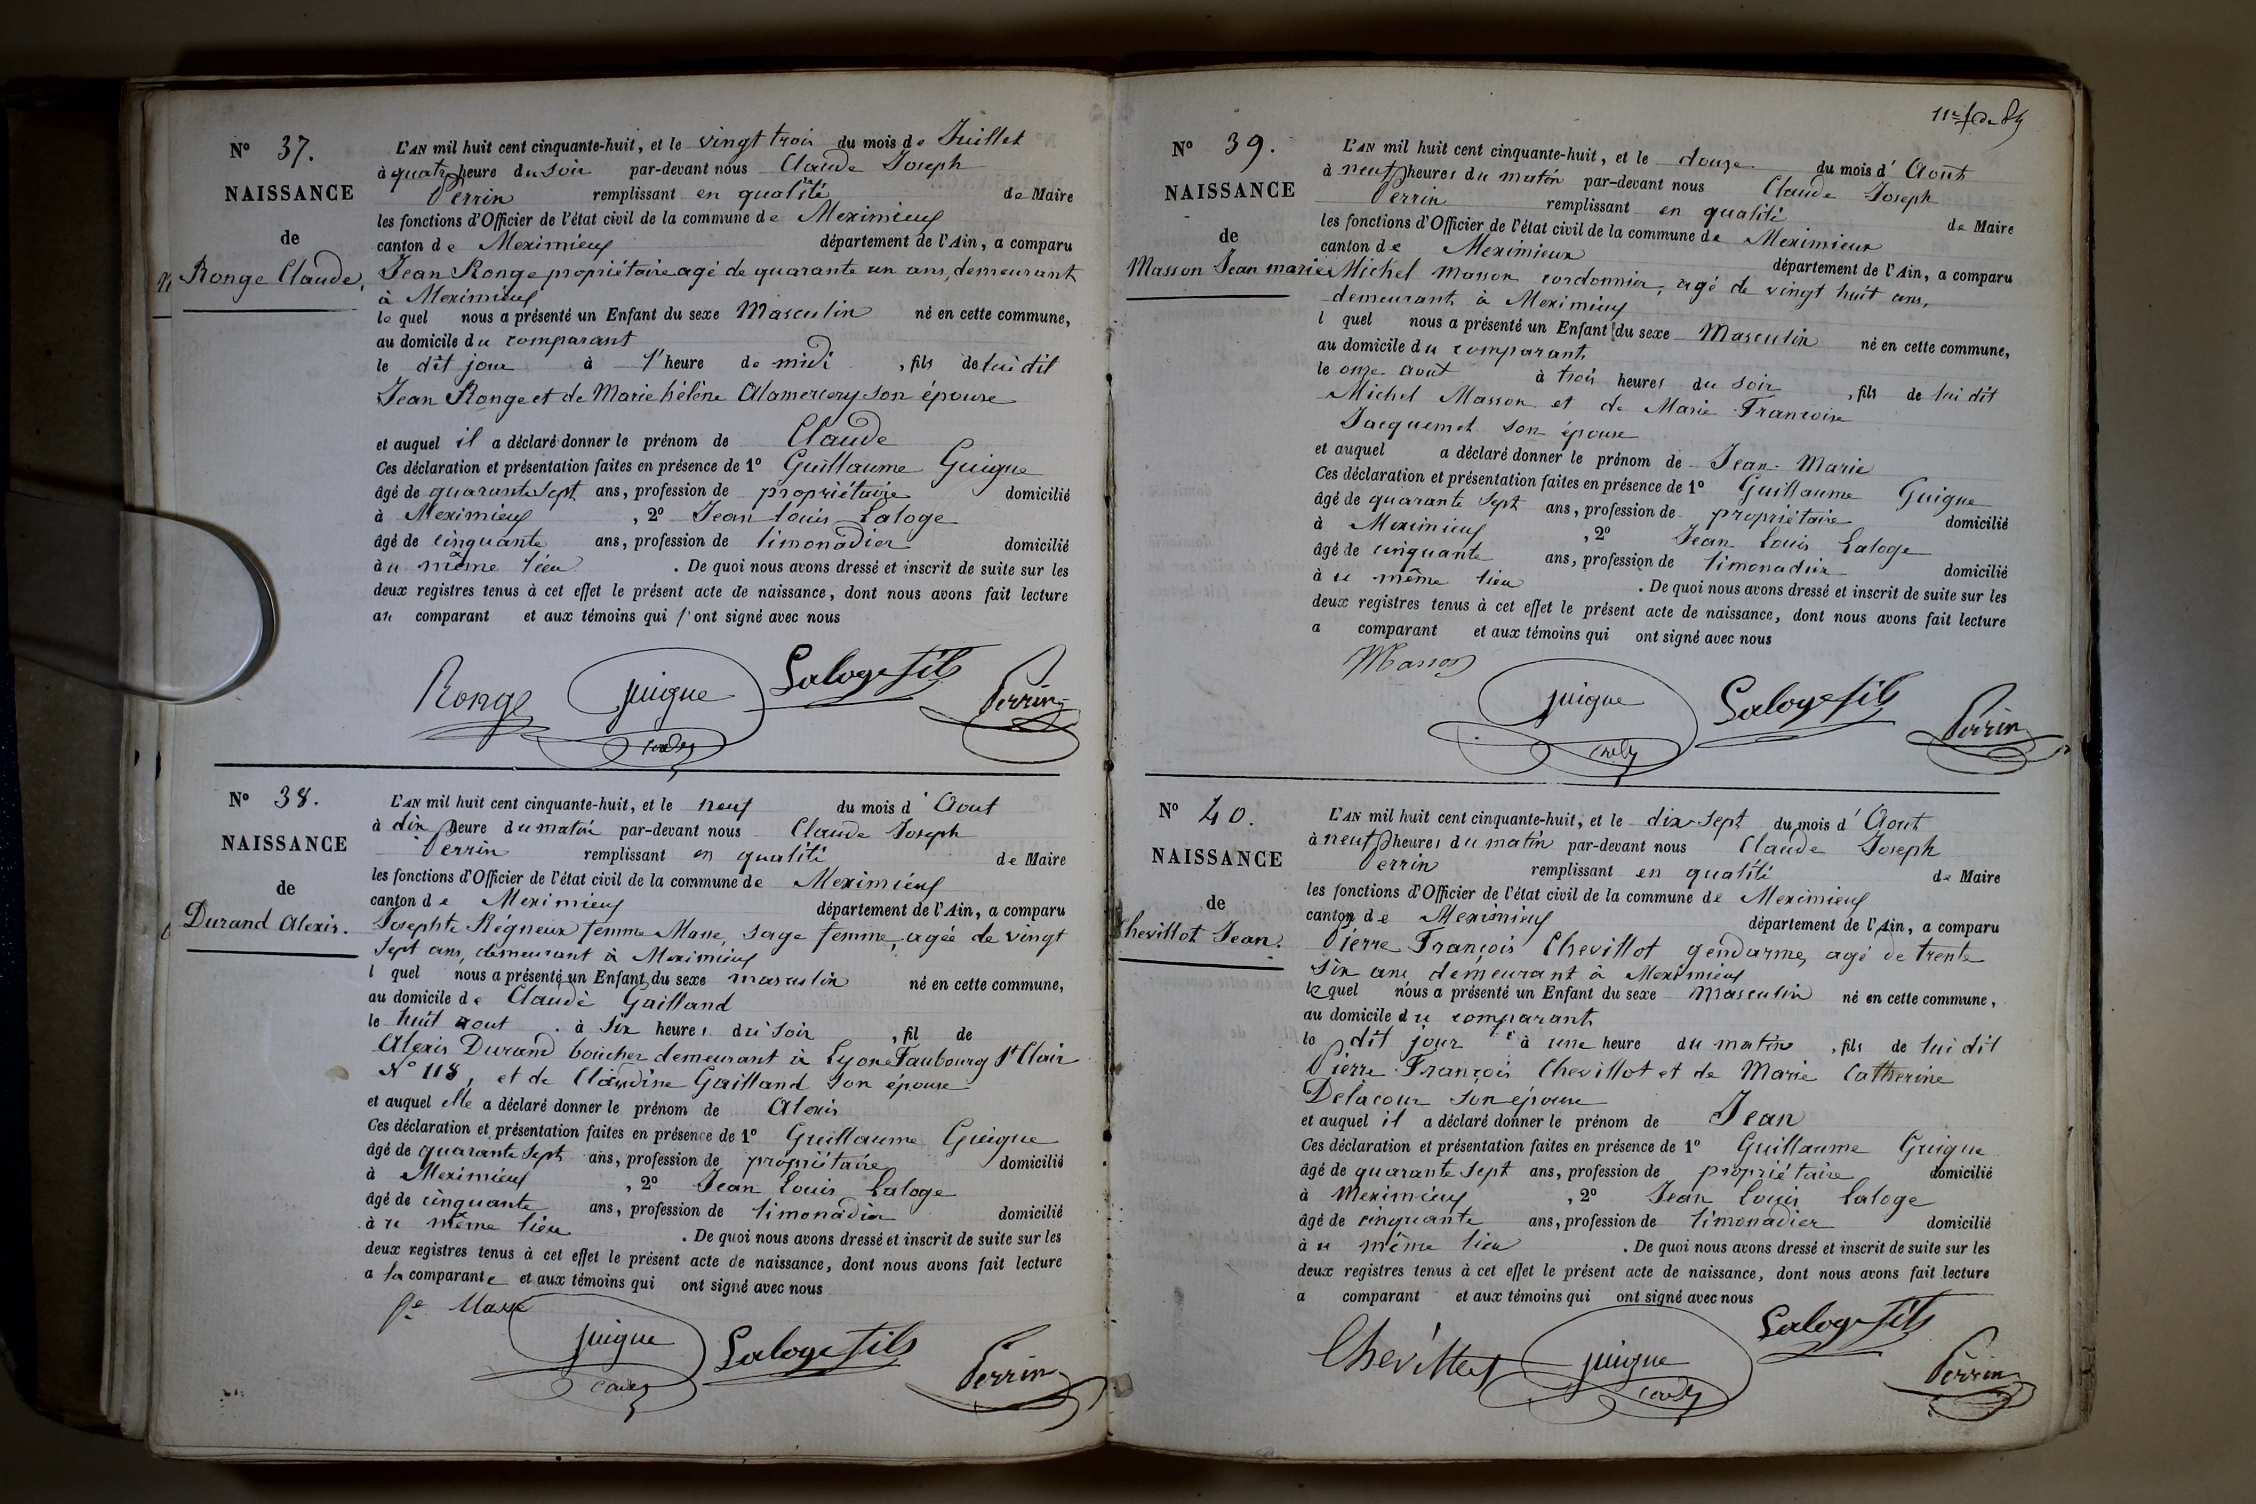 N° 37.
NAISSANCE
de
Ronge Claude.
L'AN mil huit cent cinquante-huit, et le vingt trois du mois de Juillet
à quatre heure du soir par-devant nous Claude Joseph
Perrin remplissant en qualité de Maire
les fonctions d'Officier de l'état civil de la commune de Meximieux
canton de Meximieux département de l'Ain, a comparu
Jean Ronge propriétaire agé de quarante un ans, demeurant
à Meximieux
le quel nous a présenté un Enfant du sexe Masculin né en cette commune,
au domicile du comparant
le dit jour à 1' heure de midi , fils de lui dit
Jean Ronge et de Marie hélène Alamercery son épouse
et auquel il a déclaré donner le prénom de Claude
Ces déclaration et présentation faites en présence de 1° Guillaume Guigue
âgé de quarante sept ans, profession de propriétaire domicilié
à Meximieux , 2° Jean Louis Laloge
âgé de cinquante ans, profession de limonadier domicilié
à u même lieu . De quoi nous avons dressé et inscrit de suite sur les
deux registres tenus à cet effet le présent acte de naissance, dont nous avons fait lecture
au comparant et aux témoins qui l'ont signé avec nous
Ronge Guigue Laloge fils Perrin
N° 38.
NAISSANCE
de
Durand Alexis.
L'AN mil huit cent cinquante-huit, et le neuf du mois d' Aout
à dix heure du matin par-devant nous Claude Joseph
Perrin remplissant en qualité de Maire
les fonctions d'Officier de l'état civil de la commune de Meximieux
canton de Meximieux département de l'Ain, a comparu
Josephte Régneux femme Masse, sage femme, agée de vingt
sept ans, demeurant à Meximieux
l quel nous a présenté un Enfant du sexe masculin né en cette commune,
au domicile de Claude Gailland
le huit aout à six heures du soir , fil de
Alexis Durand boucher demeurant à Lyon Faubourg St Clair
N° 118, et de Claudine Gailland son épouse
et auquel elle a déclaré donner le prénom de Alexis
Ces déclaration et présentation faites en présence de 1° Guillaume Guigue
âgé de quarante sept ans, profession de propriétaire domicilié
à Meximieux , 2° Jean Louis Laloge
âgé de cinquante ans, profession de limonadier domicilié
à u même lieu . De quoi nous avons dressé et inscrit de suite sur les
deux registres tenus à cet effet le présent acte de naissance, dont nous avons fait lecture
a la comparante et aux témoins qui ont signé avec nous
fe Masse Guigue Laloge fils Perrin
N° 39.
NAISSANCE
de
Masson Jean marie
L'AN mil huit cent cinquante-huit, et le douze du mois d' Aout
à neuf heures du matin par-devant nous Claude Joseph
Perrin remplissant en qualité de Maire
les fonctions d'Officier de l'état civil de la commune de Meximieux
canton de Meximieux département de l'Ain, a comparu
Michel Masson cordonnier, agé de vingt huit ans,
demeurant à Meximieux
l quel nous a présenté un Enfant du sexe Masculin né en cette commune,
au domicile du comparant
le onze aout à trois heures du soir , fils de lui dit
Michel Masson et de Marie Francoise
Jacquemet son épouse
et auquel a déclaré donner le prénom de Jean-Marie
Ces déclaration et présentation faites en présence de 1° Guillaume Guigue
âgé de quarante sept ans, profession de propriétaire domicilié
à Meximieux , 2° Jean Louis Laloge
âgé de cinquante ans, profession de limonadier domicilié
à u même lieu . De quoi nous avons dressé et inscrit de suite sur les
deux registres tenus à cet effet le présent acte de naissance, dont nous avons fait lecture
a comparant et aux témoins qui ont signé avec nous
Masson Guigue Laloge fils Perrin
N° 40.
NAISSANCE
de
Chevillot Jean.
L'AN mil huit cent cinquante-huit, et le dix-sept du mois d' Aout
à neuf heures du matin par-devant nous Claude Joseph
Perrin remplissant en qualité de Maire
les fonctions d'Officier de l'état civil de la commune de Meximieux
canton de Meximieux département de l'Ain, a comparu
Pierre François Chevillot gendarme, agé de trente
six ans demeurant à Meximieux
le quel nous a présenté un Enfant du sexe Masculin né en cette commune,
au domicile du comparant
le dit jour à une heure du matin , fils de lui dit
Pierre François Chevillot et de Marie Catherine
Delacour son épouse
et auquel il a déclaré donner le prénom de Jean
Ces déclaration et présentation faites en présence de 1° Guillaume Guigue
âgé de quarante sept ans, profession de propriétaire domicilié
à Meximieux , 2° Jean Louis Laloge
âgé de cinquante ans, profession de limonadier domicilié
à u même lieu . De quoi nous avons dressé et inscrit de suite sur les
deux registres tenus à cet effet le présent acte de naissance, dont nous avons fait lecture
a comparant et aux témoins qui ont signé avec nous
Chevillot Guigue Laloge fils Perrin